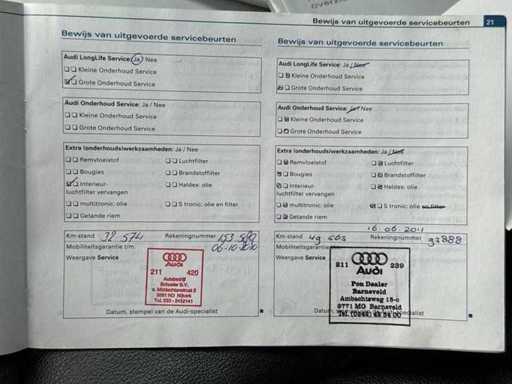 Bewijs van uitgevoerde servicebeurten 21
Bewijs van uitgevoerde servicebeurten
Audi LongLife Service: Ja / Nee
Kleine Onderhoud Service
Grote Onderhoud Service
Audi Onderhoud Service: Ja / Nee
Kleine Onderhoud Service
Grote Onderhoud Service
Extra (onderhouds)werkzaamheden: Ja / Nee
Remvloeistof
Luchtfilter
Bougies
Brandstoffilter
Interieur-
luchtfilter vervangen
Haldex: olie
multitronic: olie
S tronic: olie en filter
Getande riem
Km-stand 38 574 Rekeningnummer 153 580
Mobiliteitsgarantie t/m 06-10-2010
Weergave Service
Audi
211 420
Autobedrijf
3861 ND Nijkerk
Datum, stempel van de Audi-specialist
Bewijs van uitgevoerde servicebeurten
Audi LongLife Service: Ja / Nee
Kleine Onderhoud Service
Grote Onderhoud Service
Audi Onderhoud Service: Ja / Nee
Kleine Onderhoud Service
Grote Onderhoud Service
Extra (onderhouds)werkzaamheden: Ja / Nee
Remvloeistof
Luchtfilter
Bougies
Brandstoffilter
Interieur-
luchtfilter vervangen
Haldex: olie
multitronic: olie
S tronic: olie en filter
Getande riem
16.06.2011
Km-stand Rekeningnummer 93888
Mobiliteitsgarantie
Weergave Service
211 239
Audi
Pon Dealer
Barneveld
Ambachtsweg 15-c
3771 MG Barneveld
Datum, stempel van de Audi-specialist